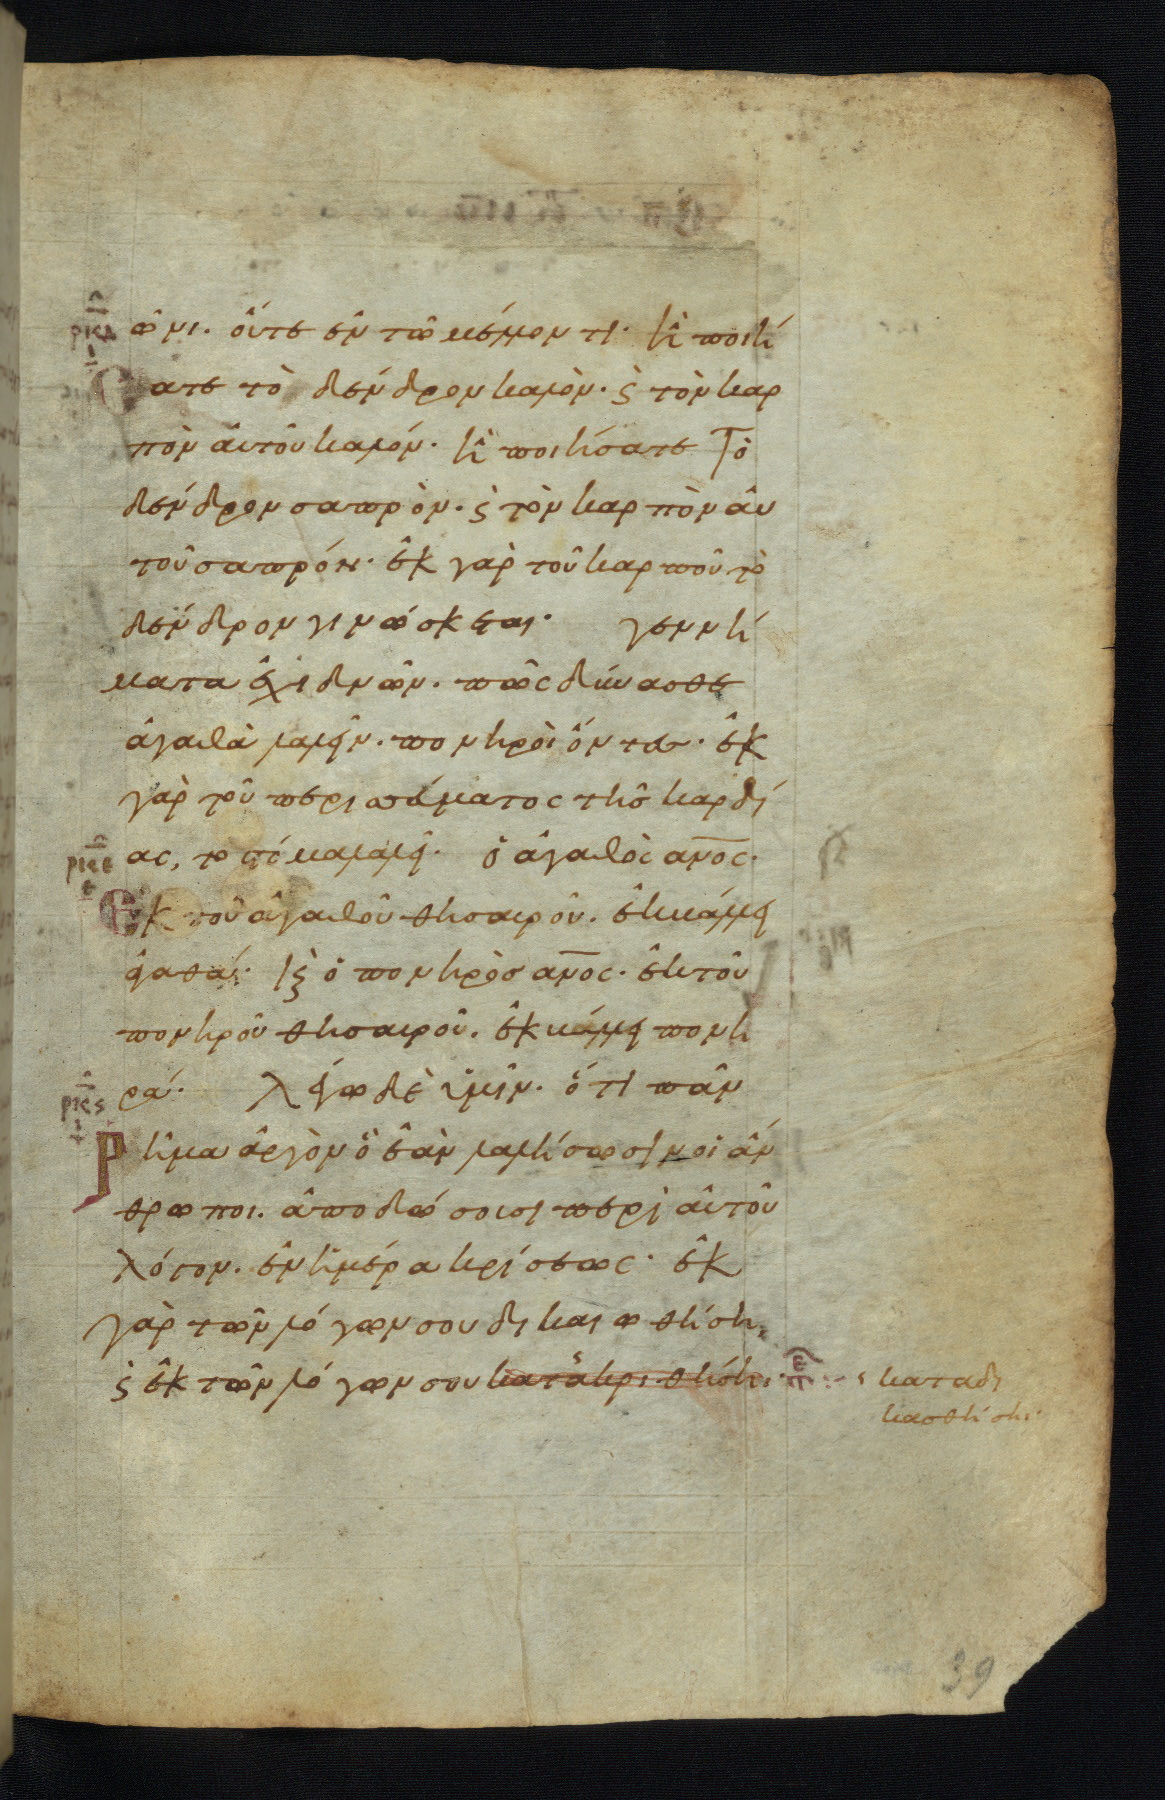 ριϛδ
ῶνι. οὔτε ἐν τῶ μέλλοντι· ἢ ποιή
σατε τὸ δένδρον καλὸν· ϛ̀ τὸν καρ
πὸν ἀυτοῦ καλόν· ἢ ποιήσατε τὸ
δένδρον σαπρὸν· ϛ̀ τὸν καρπὸν ἀυ
τοῦ σαπρόν· ἐκ γὰρ τοῦ καρποῦ τὸ
δένδρον γινώσκεται· γεννή
ματα ἐχιδνῶν. πῶς δύνασθε
ἀγαθὰ λαλεῖν. πονηρὸι ὄντες· ἐκ
γὰρ τοῦ περισσέυματος τῆς καρδί
ριϛε
ας, τὸ στόμα λαλεῖ· ὁ ἀγαθὸς ἀν̅ο̅ς·
ἐκ τοῦ ἀγαθοῦ θησαυροῦ. ἐκβάλλει
ἀγαθά· κ̣ ὁ πονηρὸς αν̅ο̅ς· ἐκ τοῦ
πονηροῦ θησαυροῦ. ἐκβάλλει πονη
ριϛϛ
ρά· λέγω δὲ ὑμῖν· ὅτι πᾶν
ῥῆμα ἀργὸν ὃ ἐὰν λαλήσωσιν οἱ ἄν
θρωποι. ἀποδώσουσι περὶ ἀυτοῦ
λόγον. ἐν ἡμέρα κρίσεως· ἐκ
γὰρ τῶν λόγων σου δικαιωθήση,
ϛ̀ ἐκ τῶν λόγων σου κατακριθήση·
καταδι
κασθήση·
39